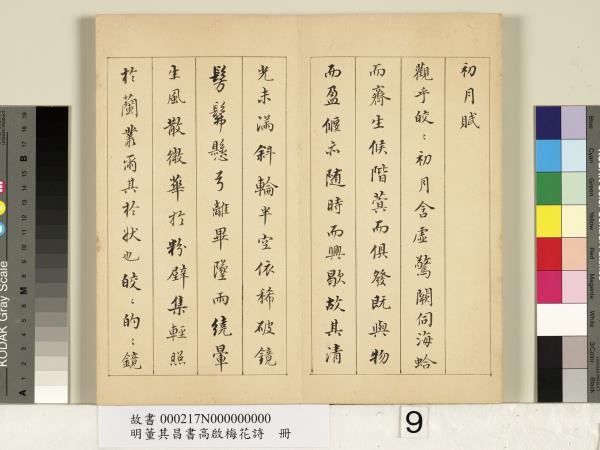 初月賦
觀乎皎〻初月含虛驚闕伺海蛤
而齊生候階蓂而俱發既與物
而盈偃亦隨時而興歇故其清
光未滿斜輪半空依稀破鏡
髣髴懸弓離畢墜雨繞暈
生風散微華於粉壁集輕照
於蘭叢爾其於狀也皎〻的〻鏡
故書 000217N000000000
明董其昌書高啟梅花詩 冊
9
KODAK Gray Scale
A
M
B
Blue
Cyan
Green
Yellow
Red
Magenta
White
3/Color
Black